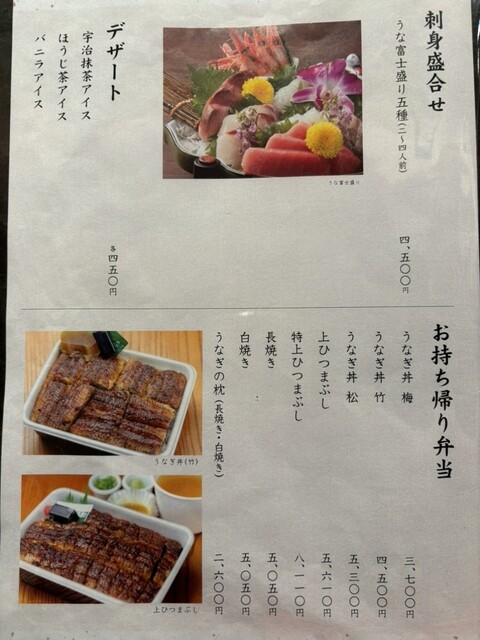 刺身盛合せ
うな富士盛り五種(二〜四人前) 四、五〇〇円
うな富士盛り
デザート
宇治抹茶アイス
ほうじ茶アイス
バニラアイス
各四五〇円
お持ち帰り弁当
うなぎ丼 梅 三、七〇〇円
うなぎ丼 竹 四、五〇〇円
うなぎ丼 松 五、三〇〇円
上ひつまぶし 五、六一〇円
特上ひつまぶし 八、一一〇円
長焼き 五、〇五〇円
白焼き 五、〇五〇円
うなぎの枕(長焼き・白焼き) 二、六〇〇円
うなぎ丼(竹)
上ひつまぶし